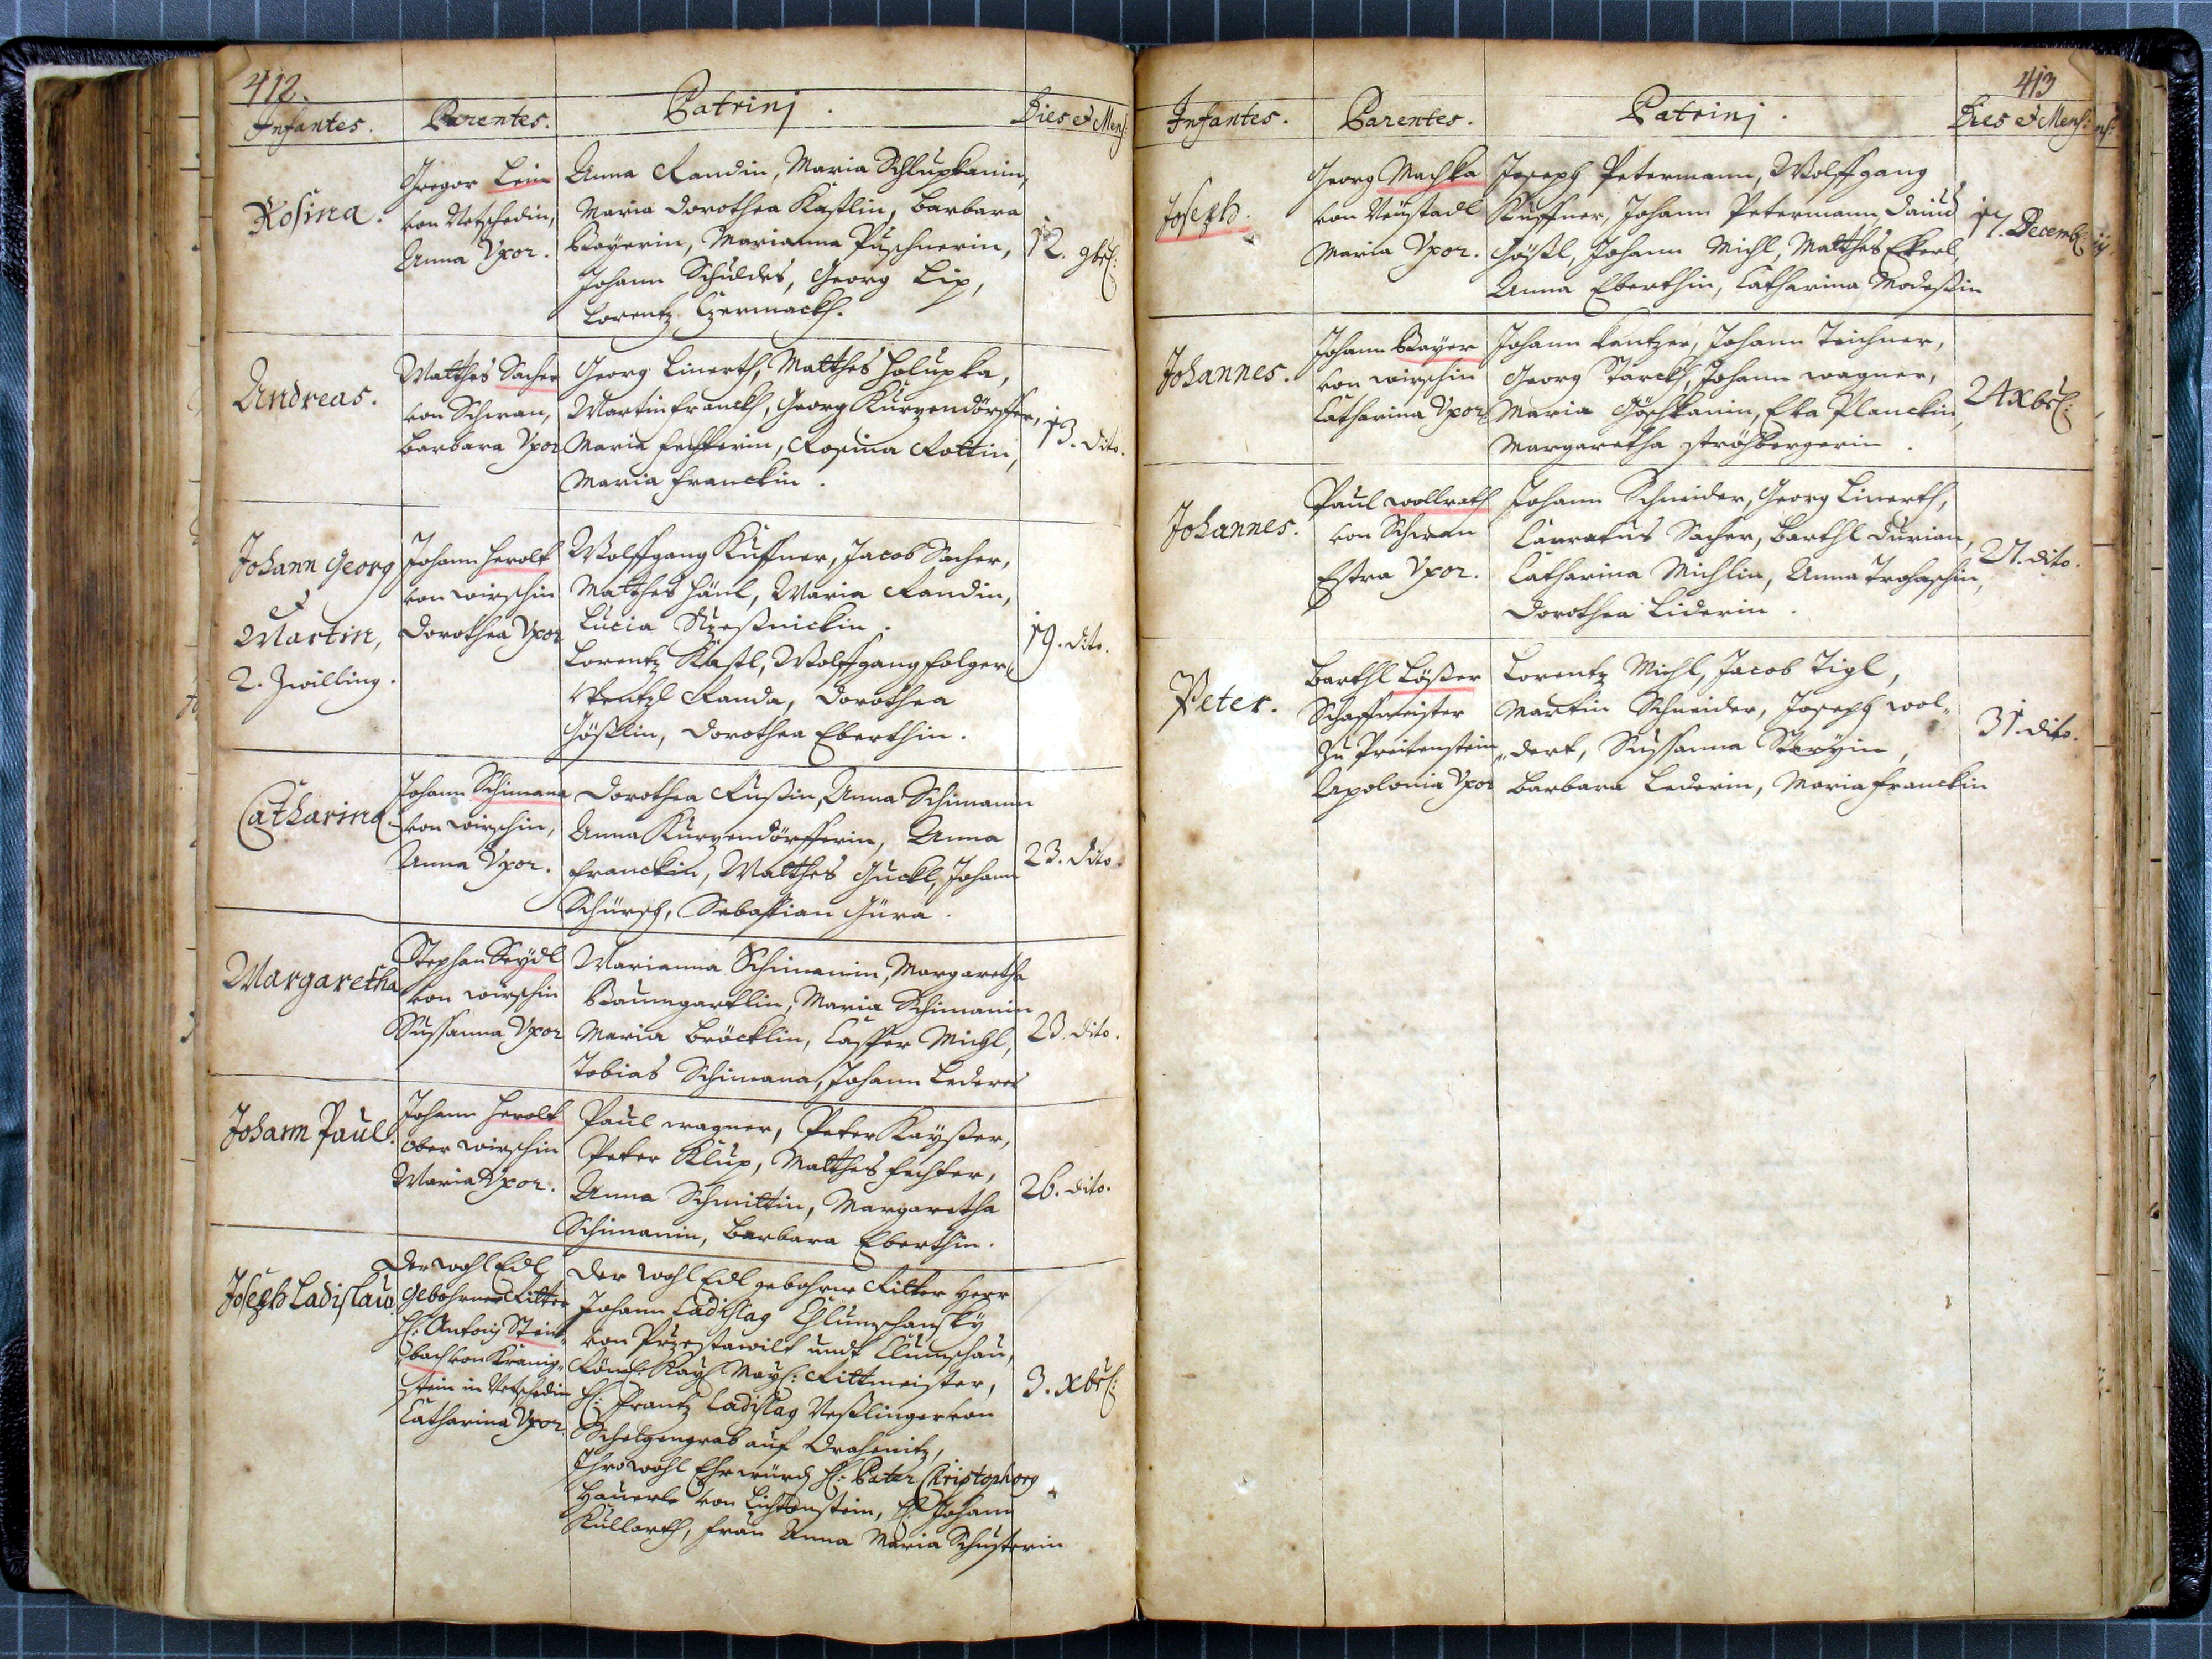 412.
Infantes. Parentes. Patrinj. Dies et Mens:
Rosina.
Gregor Lein
von Netschedin,
Anna Vxor.
Anna Randin, Maria Schlupkanin,
Maria Dorothea Kastlin, Barbara
Bayerin, Marianna Puschnerin,
Johann Schuldes, Georg Lix,
Lorentz Czermack.
12. 9br:
Andreas.
Matthes Sacher
von Schwan,
Barbara Vxor
Georg Linerth, Matthes Holupka,
Martin Franckh, Georg Kurzendörffer,
Maria Fechterin, Rosina Rottin,
Maria Franckin.
13. dito.
Johann Georg
et
Martin,
2. Zwilling.
Johann Herolt
von Wirschin
Dorothea Vxor
Wolffgang Kuffner, Jacob Sacher,
Matthes Häul, Maria Randin,
Lucia
Lorentz Kastl, Wolffgang Folger,
Wentzl Randa, Dorothea
Gößlin, Dorothea Eberthin.
19. dito.
Catharina
Johann Schimana
von Wirschin,
Anna Vxor.
Dorothea Rußin, Anna Schimanin
Anna Kurzendörfferin, Anna
Franckin, Matthes Guckl, Johann
Schürsch, Sebastian Güra.
23. dito.
Margaretha
Stephan Seydl
von Wirschin
Sussanna Vxor
Marianna Schimanin, Margaretha
Baumgartlin, Maria Schimanin
Maria Bröcklin, Casper Michl,
Tobias Schimana, Johann Lederer
23. dito.
Johann Paul.
Johann Herolt
ober Wirschin
Maria Vxor.
Paul Wagner, Peter Kayßer,
Peter Klup, Matthes Fechter,
Anna Schmittin, Margaretha
Schimanin, Barbara Eberthin.
26. dito.
Joseph Ladislaus
Der Wohl Edl
gebohrner Ritter
H: Antonj Stein„
„bach von Kranig„
stein in Netschedin
Catharina Vxor.
Der Wohl Edl gebohrne Ritter Herr
Johann Ladislag Chlumschansky
von Przestawilk undt Clumschan,
Röm: Kay: May: Rittmeister,
H: Frantz Ladislag Veßlinger von
Schelgengrab auf Drahenitz,
Ihro Wohl Ehrwürd H: Pater Christophorg
Hauerle von Lichtenstein, H: Johann
Kullarth, Frau Anna Maria Schusterin
3. Xbr:
413
Infantes. Parentes. Patrinj. Dies et Mens:
Joseph.
Georg Machka
von Neustadl
Maria Vxor.
Joseph Petermann, Wolffgang
Kuffner, Johann Petermann, David
Gößl, Johann Michl, Matthes Ekerl,
Anna Eberthin, Catharina Modestin
17. Decemb:
Johannes.
Johann Bayer
von Wirschin
Catharina Vxor.
Johann Lantzer, Johann Teichner,
Georg Starckh, Johann Wagner,
Maria Göschkanin, Eva Planckin,
Margaretha Ströhbergerin.
24 Xbr:
Johannes.
Paul Wollrath
von Schwan
Estra Vxor.
Johann Schneider, Georg Linerth,
Sacher, Barthl Durian,
Catharina Michlin, Anna Trohaschin,
Dorothea Liderin.
27. dito.
Peter.
Barthl Lößer
Schaffmeister
zu Preitenstein
Apolonia Vxor
Lorentz Michl, Jacob Tigl,
Martin Schneider, Joseph Wol„
„dert, Sussanna
Barbara Lederin, Maria Franckin
31. dito.